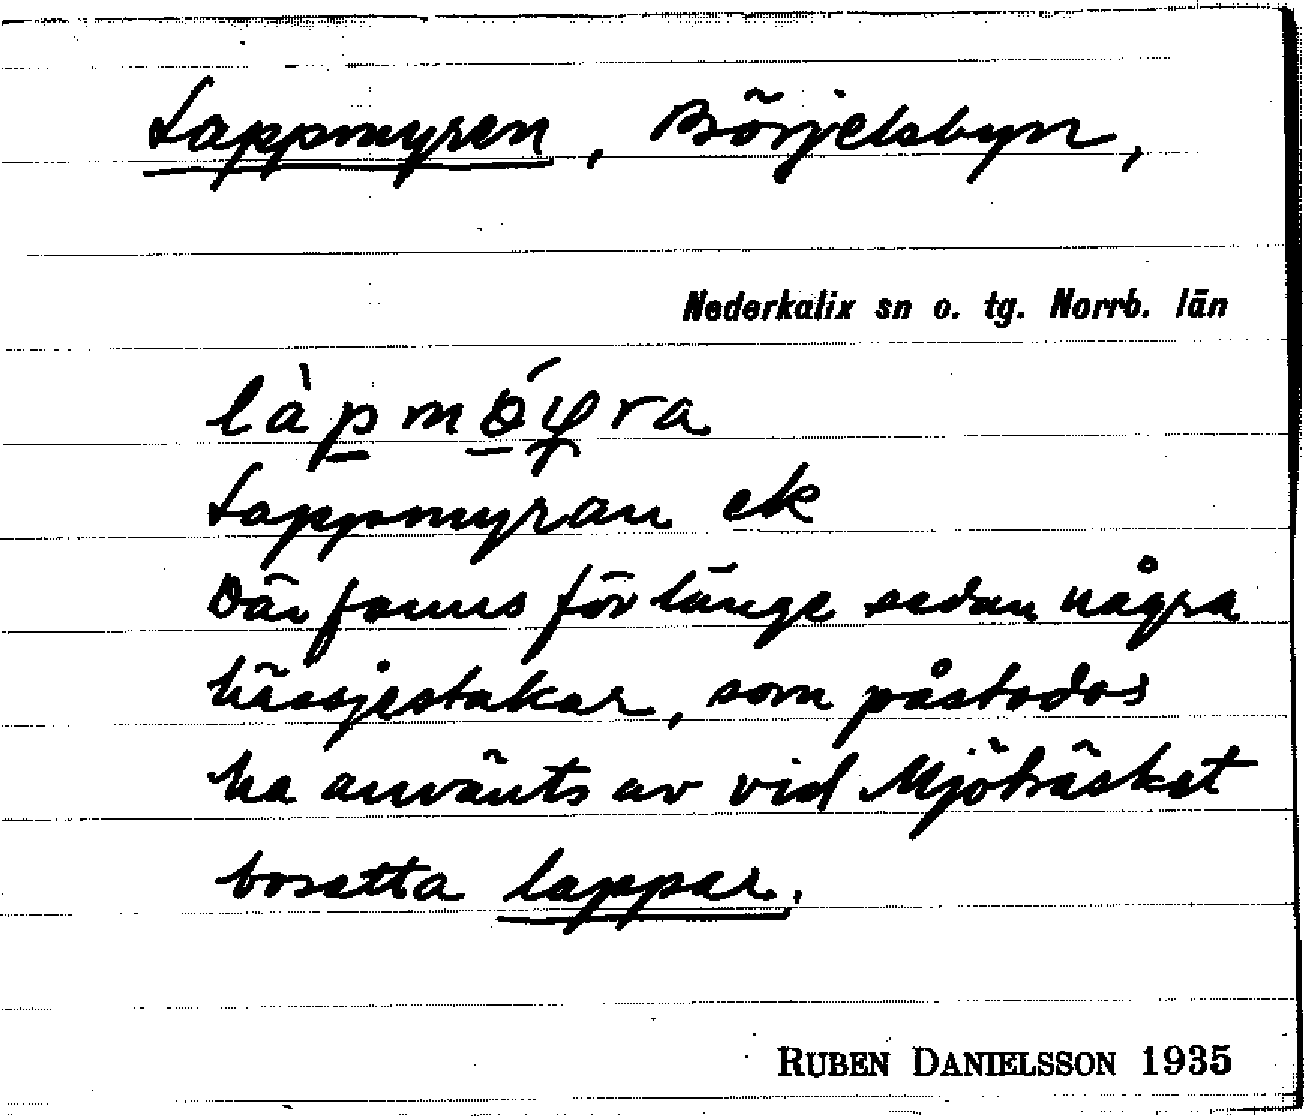 Lappmyren, Börjelsbyn,
Nederkalix sn o. tg. Norrb. län
Lappmyran ek
Där fanns för länge sedan några
hässjestakar, som påstodos
ha använts av vid Mjöträsket
bosatta lappar.
RUBEN DANIELSSON 1935